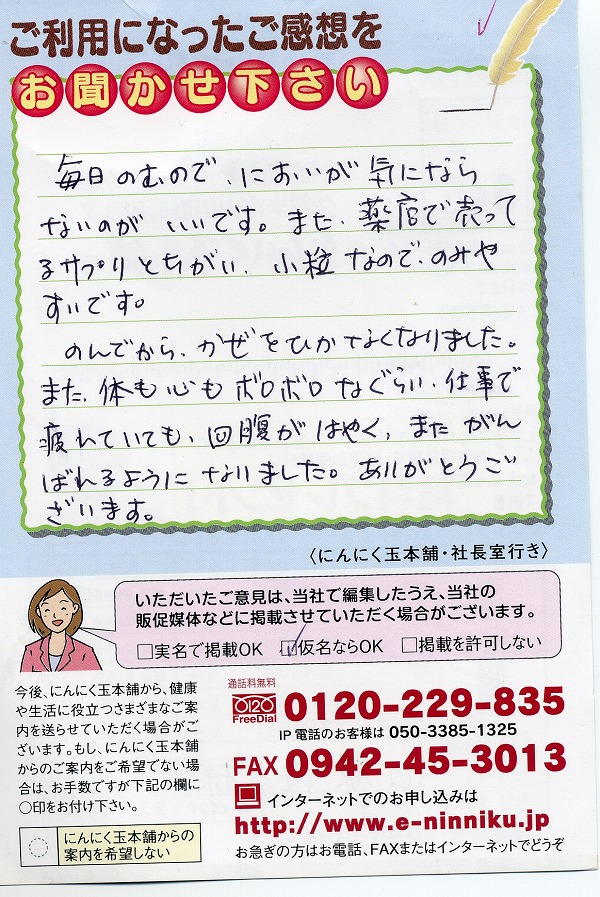 ご利用になったご感想を
お聞かせ下さい
毎日のむので、においが気になら
ないのがいいです。また、薬店で売って
るサプリとちがい、小粒なので、のみや
すいです。
のんでから、かぜをひかなくなりました。
また、体も心もボロボロなぐらい、仕事で
疲れていても、回腹がはやく、またがん
ばれるようになりました。ありがとうご
ざいます。
〈にんにく玉本舗・社長室行き〉
いただいたご意見は、当社で編集したうえ、当社の
販促媒体などに掲載させていただく場合がございます。
□実名で掲載OK □仮名ならOK □掲載を許可しない
今後、にんにく玉本舗から、健康
や生活に役立つさまざまなご案
内を送らせていただく場合がご
ざいます。もし、にんにく玉本舗
からのご案内をご希望でない場
合は、お手数ですが下記の欄に
○印をお付け下さい。
にんにく玉本舗からの
案内を希望しない
通話料無料
0120
FreeDial
0120-229-835
IP電話のお客様は 050-3385-1325
FAX 0942-45-3013
インターネットでのお申し込みは
http://www.e-ninniku.jp
お急ぎの方はお電話、FAXまたはインターネットでどうぞ